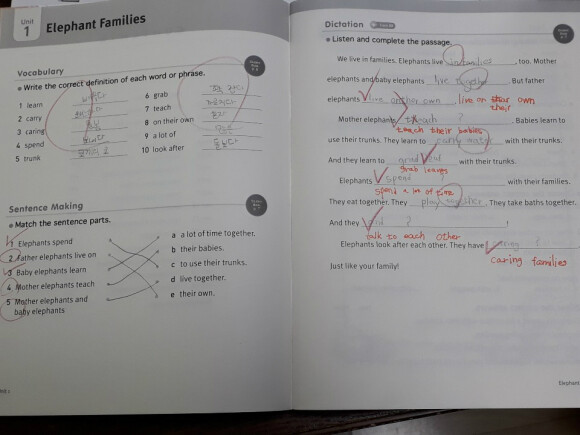 Unit
1
Elephant Families
Vocabulary
Write the correct definition of each word or phrase.
1 learn 배우다
2 carry
3 caring
4 spend
5 trunk
6 grab
7 teach 가르치다
8 on their own 혼자
9 a lot of 많은
10 look after 돌보다
Sentence Making
Match the sentence parts.
1 Elephants spend
2 Father elephants live on
3 Baby elephants learn
4 Mother elephants teach
5 Mother elephants and
baby elephants
a a lot of time together.
b their babies.
c to use their trunks.
d live together.
e their own.
Dictation
Listen and complete the passage.
We live in families. Elephants live in families, too. Mother
elephants and baby elephants live together. But father
elephants live on their own. live on their own
their
Mother elephants teach ? Babies learn to
teach their babies
use their trunks. They learn to carry water with their trunks.
And they learn to grab with their trunks.
grab leaves
Elephants spend ? with their families.
spend a lot of time
They eat together. They play together. They take baths together.
And they ? !
talk to each other
Elephants look after each other. They have ?
caring families
Just like your family!
Elephant